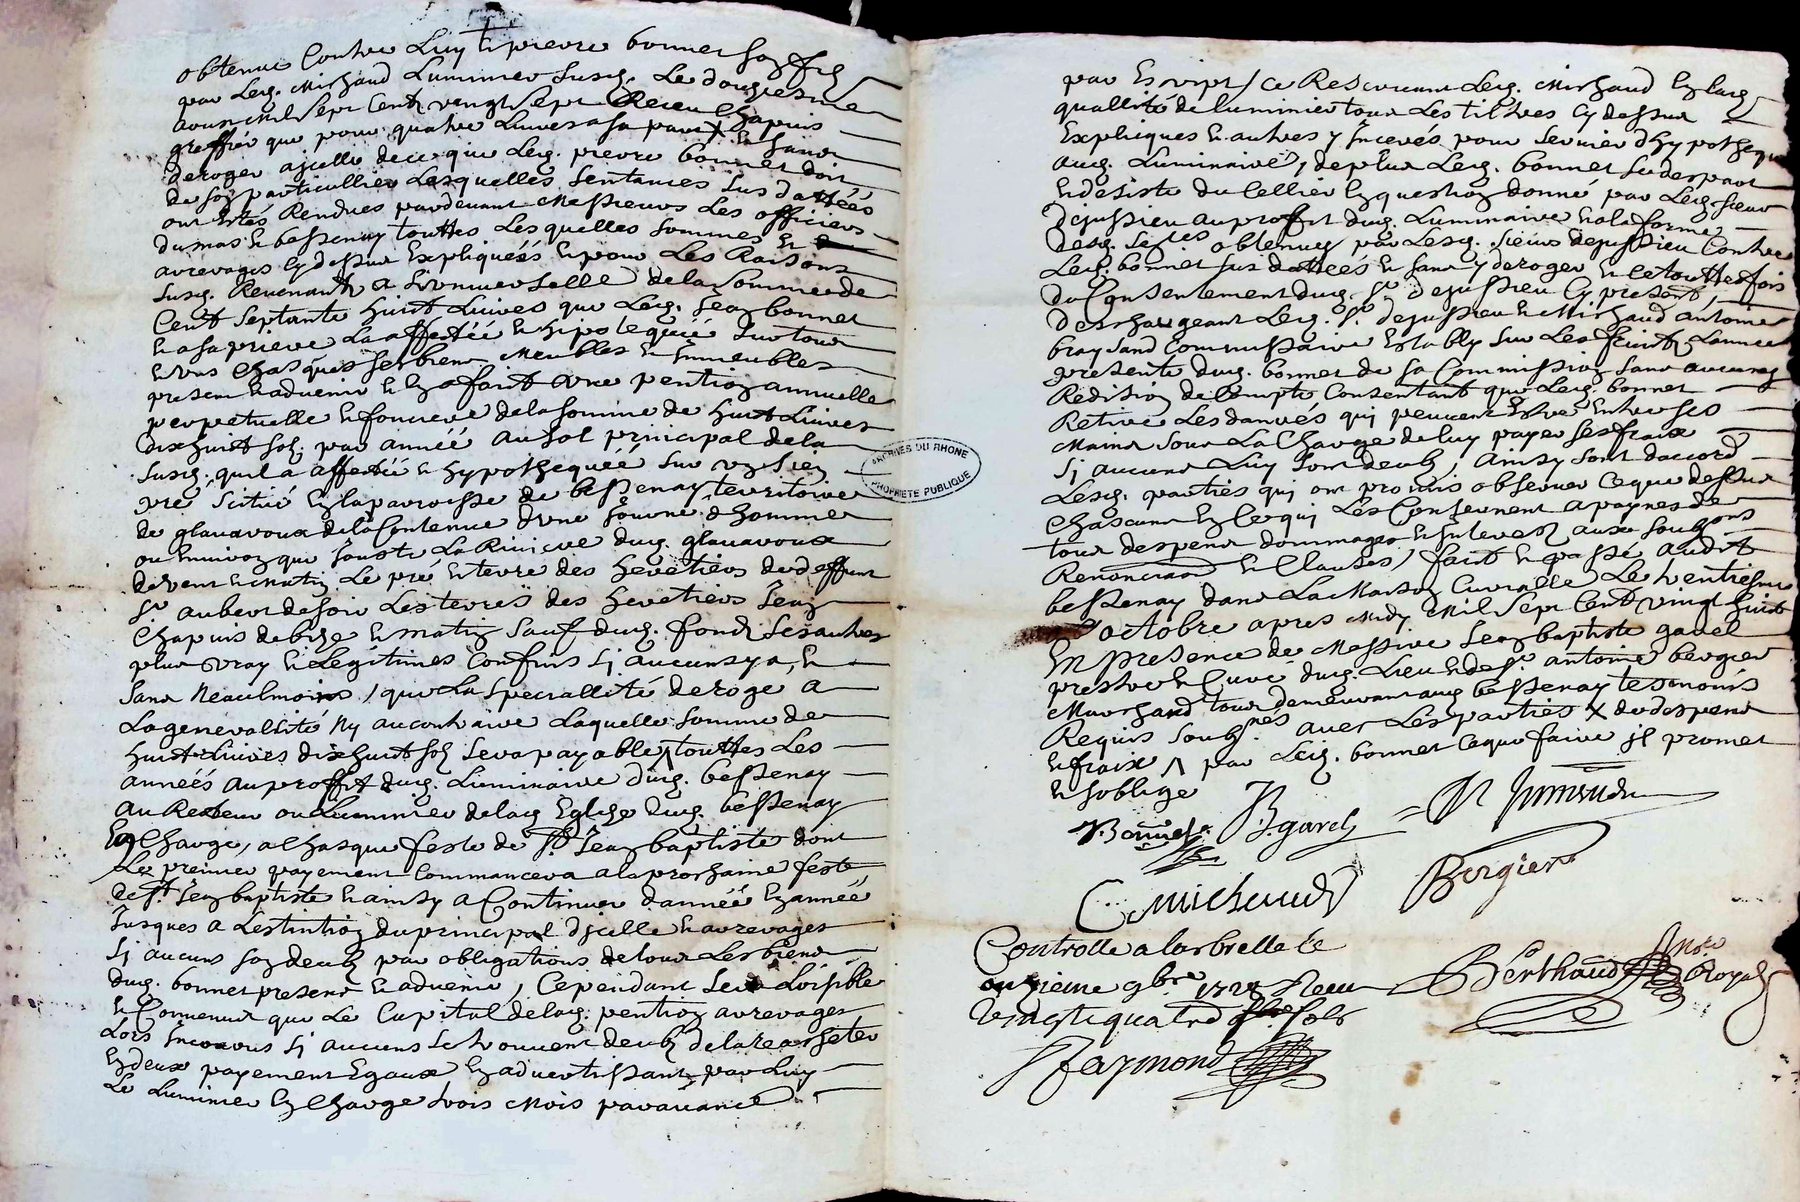 obtenue Contre Luy & pierre bonnet son fils
par Led. Michaud Luminier Susd. Le douziesme
aoust Mil Sept Cent vingt Sept Receu Chapuis
greffier que pour quatre Livres a sa part X & sans
deroger a jcelle de ce que Led. pierre bonnet doit
de son particullier Lesquelles Sentances Sus dattées
ont Estés Rendues pardevant Messieurs Les officiers
du mas & bessenay touttes Lesquelles sommes &
arrerages Cy dessus Expliqueés & pour Les Raisons
Susd. Revenants a Celle de la Somme de
Cent Septante huict Livres que Led. Jean bonnet
& a sa priere La affectée & hipotequée Sur tous
& uns Chasques ses biens Meubles & Immeubles
presens & advenir & En a faict une pention annuelle
perpetuelle & fonciere de la somme de huict Livres
dixhuict solz par année au sol principal de la
Susd. quil a affectée & hypothequée sur un sien
pré Scitué En la parroisse de bessenay territoire
de glavaroux de la Contenue d'une journé d'homme
ou Environ que jouste La Riviere dud. glavaroux
de vent & matin Le pré & terre des heretiers de deffunt
Sr. aubert de soir Les terres des heretiers Jean
Chapuis de bize & matin Sauf dud. fond Ses autres
plus vray & Legitimes Confins Si aucuns y a, &
sans Neaulmoins / que La specialité deroge a
La generallité Ny au contraire Laquelle somme de
huict Livres dixhuict solz sera payable touttes Les
années au proffit dud. Luminaire dud. bessenay
au Recteur ou Luminier de lad. Eglize dud. bessenay
En Charge, a Chasque feste de St. Jean baptiste dont
Le premier payement Commancera a la prochaine feste
de St. Jean baptiste & ainsy a Continuer d'année En année
Jusques a Lestintion du principal d'jcelle & arrerages
Si aucuns son deubz par obligations de tous Les biens
dud. bonnet presens & advenir, Cependant Sera Loisible
& Convenu que Le Capital de lad. pention arrerages
Lors Encourus Si aucuns se trouvent deubz de la rachepter
En deux payement Egaux En advertissant par Luy
Le Luminier En Charge trois Mois par avance
par Escript / Ce Recevant Led. Michaud En lad.
quallité de luminier tous Les tiltres Cy dessus
Expliques & autres y Incerés pour servier d'hypotheque
aud. Luminaire, de plus Led. bonnet se despart
& desiste du Cellier En question donné par Led. sieur
Dejussieu au proffit dud. Luminaire & a la forme
desd. Sences obtenues par Lesd. sieurs dejussieu Contre
Led. bonnet sus dattées & sans y deroger & ce touttes fois
du Consentement dud. Sr. dejussieu Cy present,
deschargeant Led. Sr. dejussieu & Michaud antoine
Commissaire Estably sur Les fruicts Lannée
presente dud. bonnet de sa Commission sans aucune
Redition de Compte Consentant que Led. bonnet
Retire Les danrés qui peuvent Estre Entre ses
Mains sous La Charge de luy payer ses fraix
Si aucuns Luy sont deubz, Ainsy sont daccord
Lesd. parties qui ont promis observer Ce que dessus
Chascune En Ce qui Les Consernent a paynes de
tous despens dommages & Interestz aux
Renonciaons & Clauses / faict & passé audit
bessenay dans La Maison Curialle Le trentiesme
octobre apres Midy Mil Sept Cent vingt huict
En presence de Messire Jean baptiste gavel
prestre & Curé dud. Lieu & de Sr. antoine bergier
Marchand tous demeurant aud. bessenay tesmoins
Requis soubsnés avec Les parties X de despens
& fraix /\ par Led. bonnet Ce que faire jl promet
& soblige
J. Bonnet
C Michaud
Bergier
Controlle a larbrelle le
onzieme 9bre 1728 Receu
vingt quatre solz
Raymond
Berthaud
Nore Royal
ARCHIVES DU RHONE
PROPRIETE PUBLIQUE